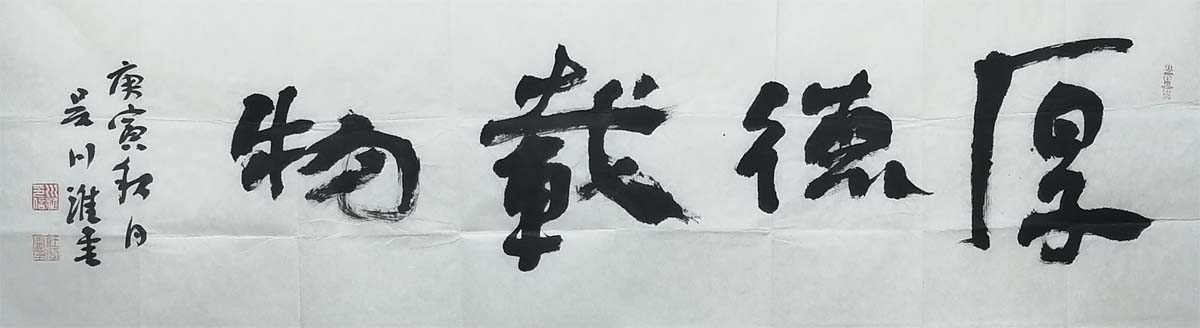 厚德載物
庚寅秋月
吴川淮書